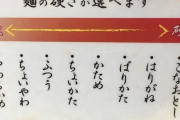 麺の硬さが選べます
こなおとし
はりがね
ばりかた
かため
ふつう
ちょいかた
ちょいやわ